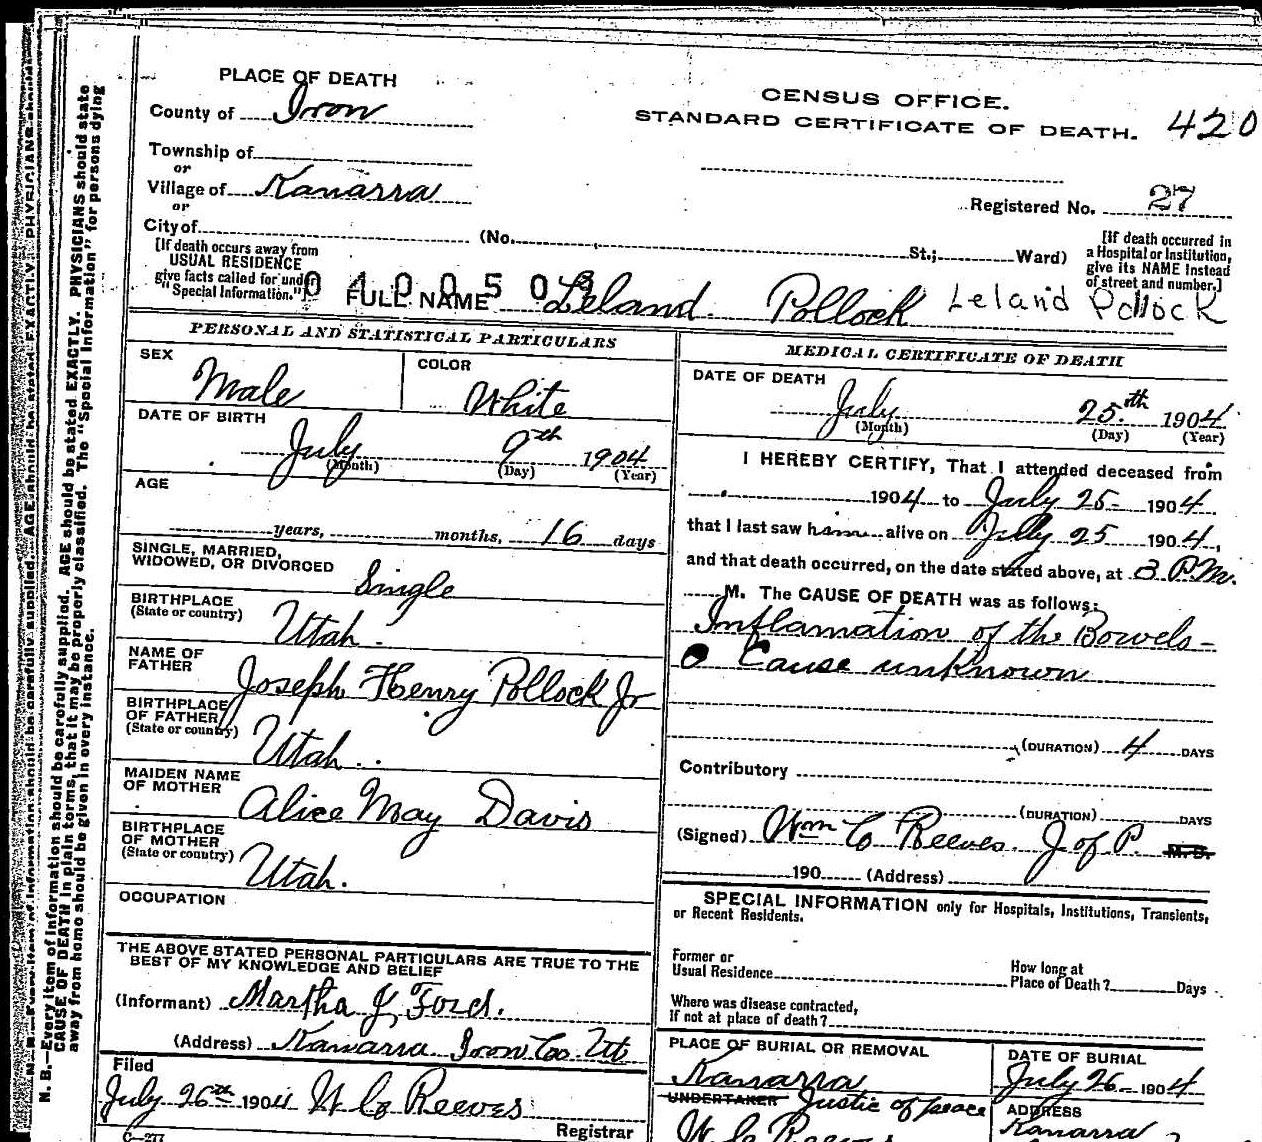 PLACE OF DEATH
County of Iron
CENSUS OFFICE.
STANDARD CERTIFICATE OF DEATH. 420
Township of
or
Village of Kanarra
or
City of
Registered No. 27
(No. St.; Ward)
[If death occurs away from
USUAL RESIDENCE
give facts called for under
"Special Information."]
[If death occurred in
a Hospital or Institution,
give its NAME instead
of street and number.]
0400509
FULL NAME Leland Pollock Leland Pollock
PERSONAL AND STATISTICAL PARTICULARS
SEX
Male
COLOR
White
DATE OF BIRTH
July 9th 1904
(Month) (Day) (Year)
AGE
years, months, 16 days
SINGLE, MARRIED,
WIDOWED, OR DIVORCED
Single
BIRTHPLACE
(State or country)
Utah.
NAME OF
FATHER
Joseph Henry Pollock Jr
BIRTHPLACE
OF FATHER
(State or country)
Utah.
MAIDEN NAME
OF MOTHER
Alice May Davis
BIRTHPLACE
OF MOTHER
(State or country)
Utah.
OCCUPATION
THE ABOVE STATED PERSONAL PARTICULARS ARE TRUE TO THE
BEST OF MY KNOWLEDGE AND BELIEF
(Informant) Martha J. Ford.
(Address) Kanarra Iron Co. Ut
Filed
July 26th 1904 W C Reeves
Registrar
C-277
MEDICAL CERTIFICATE OF DEATH
DATE OF DEATH
July 25th 1904
(Month) (Day) (Year)
I HEREBY CERTIFY, That I attended deceased from
1904 to July 25- 1904
that I last saw him alive on July 25 1904,
and that death occurred, on the date stated above, at 3 P.M.
M. The CAUSE OF DEATH was as follows:
Inflamation of the Bowels-
Cause unknown
(DURATION) 4 DAYS
Contributory
(DURATION) DAYS
(Signed) Wm C Reeves. J of P. M.D.
190 (Address)
SPECIAL INFORMATION only for Hospitals, Institutions, Transients,
or Recent Residents.
Former or
Usual Residence
How long at
Place of Death? Days
Where was disease contracted,
If not at place of death?
PLACE OF BURIAL OR REMOVAL
Kanarra
DATE OF BURIAL
July 26- 1904
UNDERTAKER Justice of peace
W C Reeves
ADDRESS
Kanarra
N. B.—Every item of information should be carefully supplied. AGE should be stated EXACTLY. PHYSICIANS should state
CAUSE OF DEATH in plain terms, that it may be properly classified. The "Special Information" for persons dying
away from home should be given in every instance.